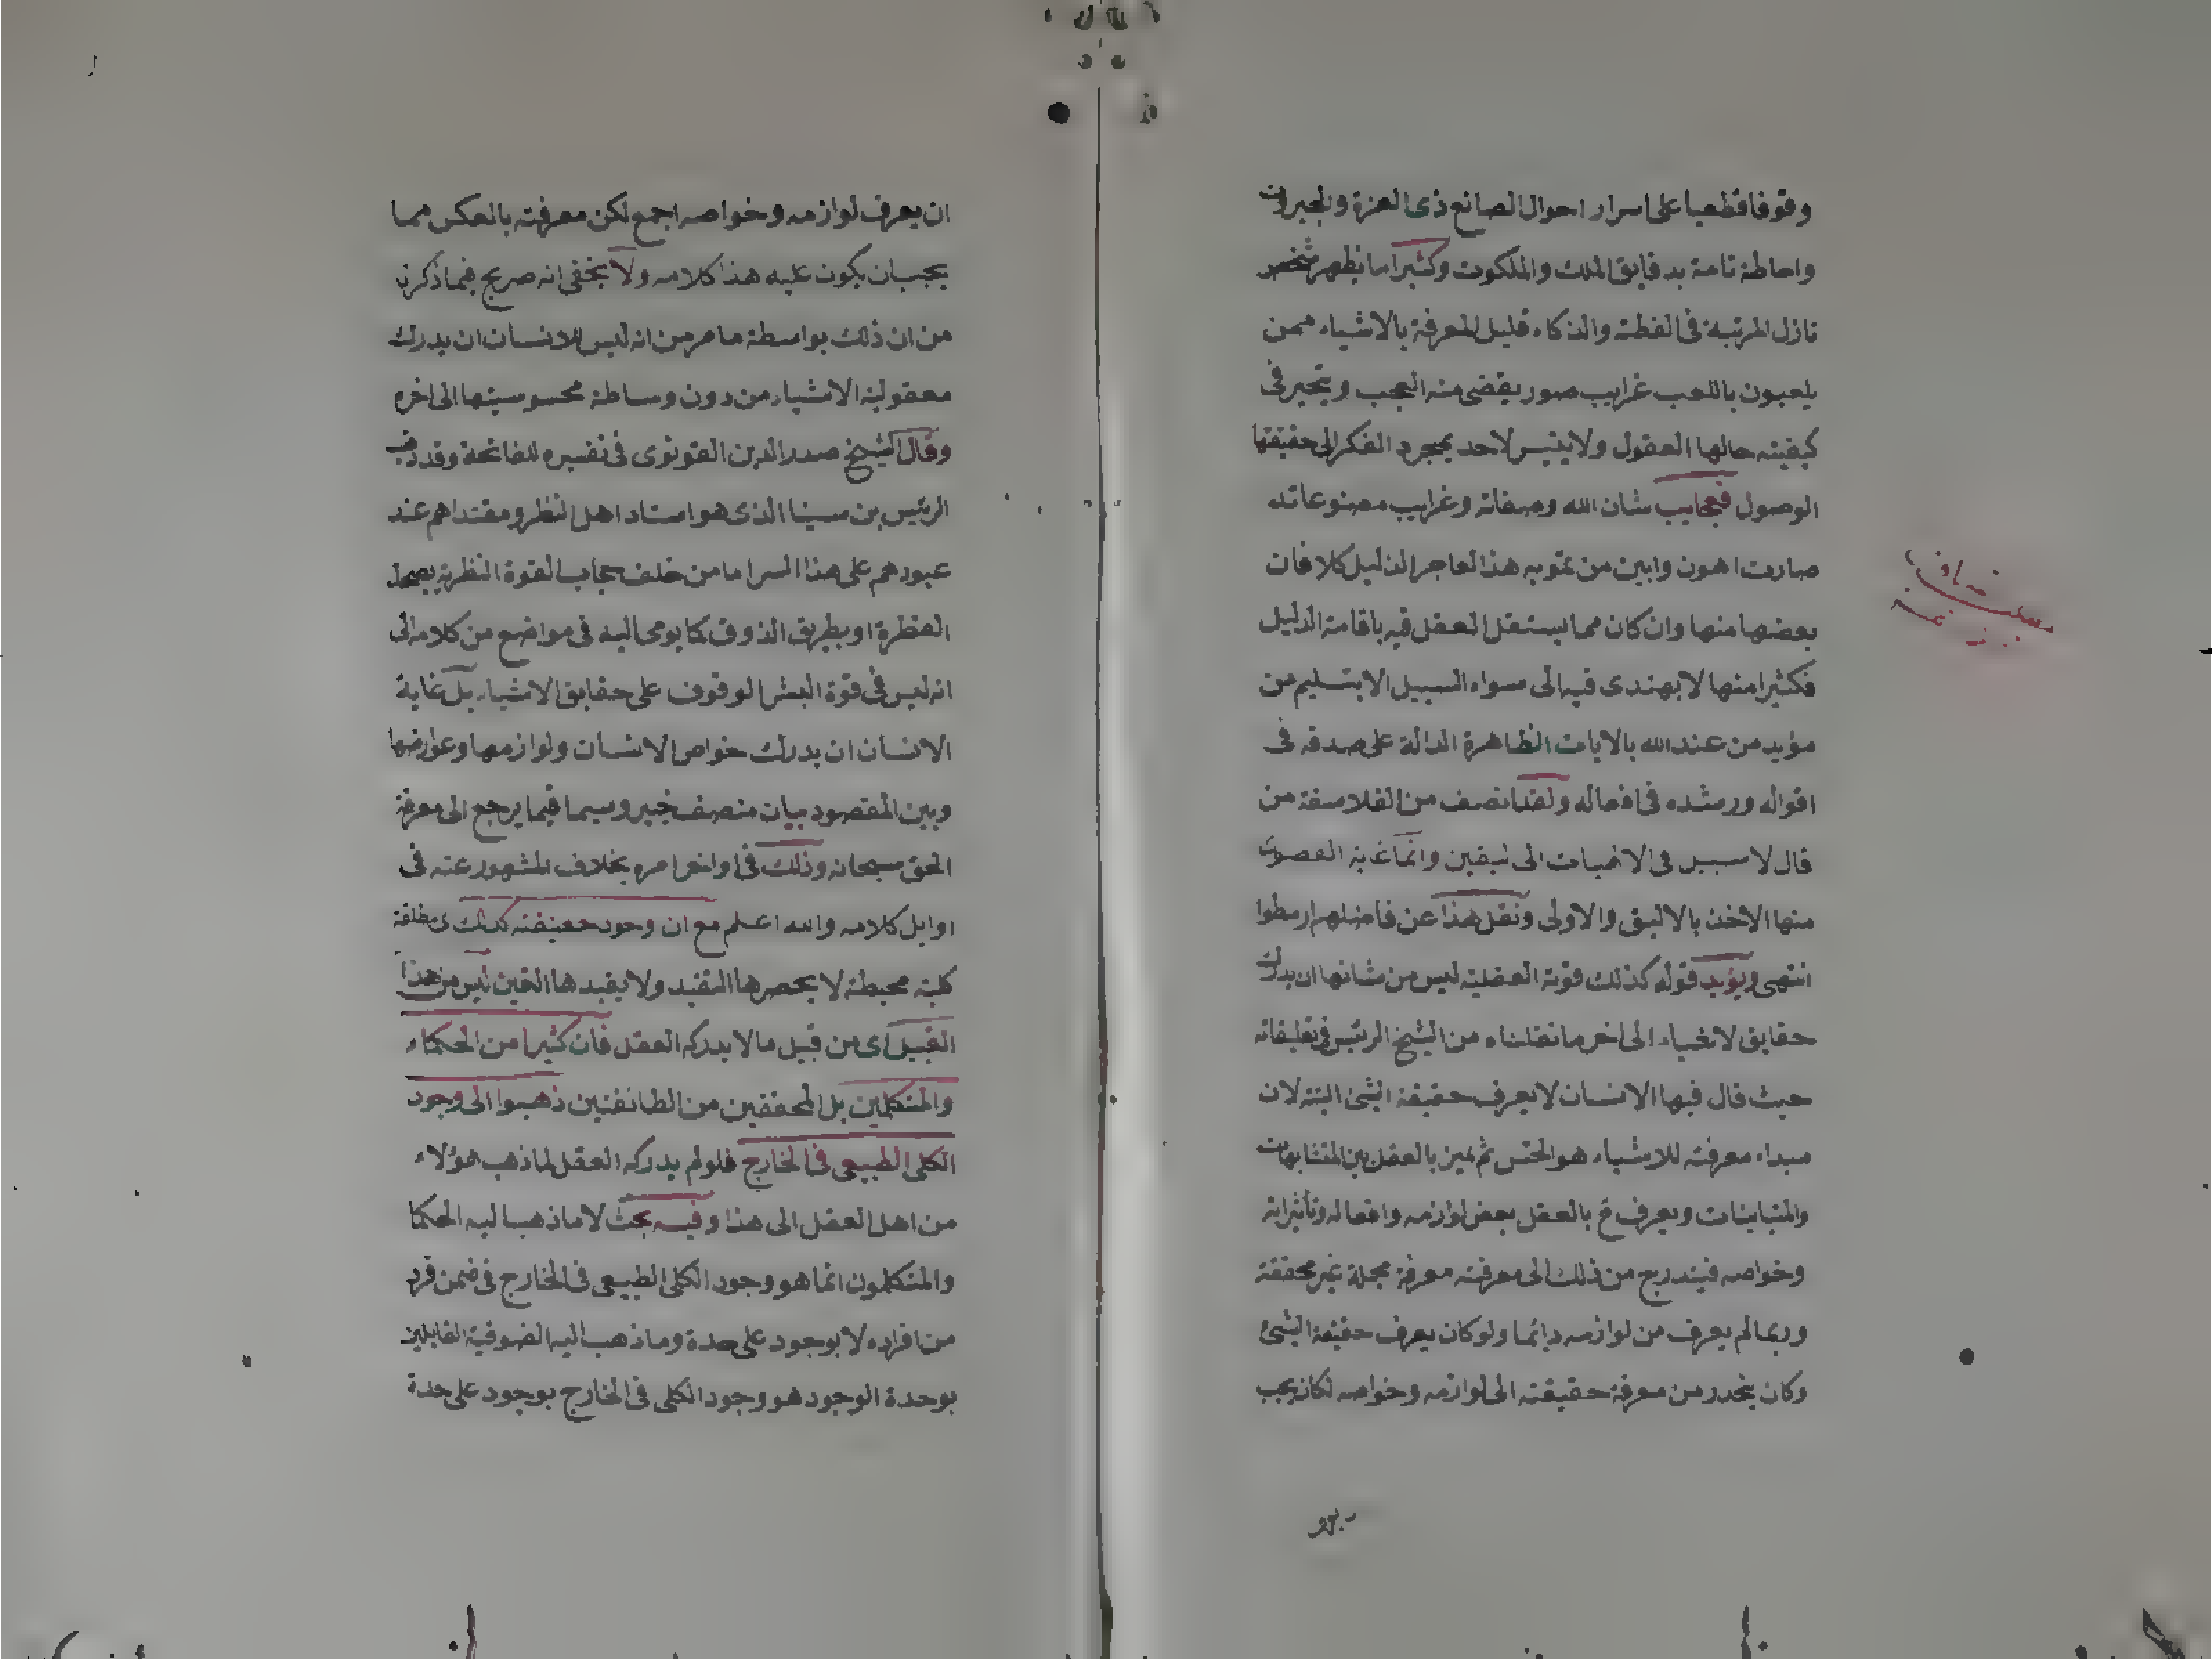 وقوفا قطعيا على اسرار احوال الصانع ذى العزة والجبروت
واحاطة تامة بدقايق الملك والملكوت وكثيرا ما يظهر شخص
نازل المرتبة فى الفطنة والذكاء قليل المعرفة بالاشياء ممن
يلعبون باللعب غرايب صور يقضى منه العجب ويتحير فى
كيفيته حالها العقول ولا يتيسر لاحد بمجرد الفكر الى حقيقتها
الوصول فعجايب شان الله وصفاته وغرايب مصنوعاته
صارت اهون وابين من تمويه هذا العاجز الذليل كلا فان
بعضها منها وان كان مما يستقل العقل فيه باقامة الدليل
فكثيرا منها لا يهتدى فيه الى سواء السبيل الا بتسليم من
مؤيد من عند الله بالايات الظاهرة الدالة على صدقه فى
اقواله ورشده فى افعاله ولقد انصف من الفلاسفة من
قال لا سبيل فى الالهيات الى اليقين وانما غاية القصوى
منها الاخذ بالاليق والاولى ونقل هذا عن فاضلهم ارسطوا
انتهى ويؤيد قوله كذلك قوته العقلية ليس من شانها ان يدرك
حقايق الاشياء الى اخر ما نقلناه من الشيخ الرئيس فى تعليقاته
حيث قال فيها الانسان لا يعرف حقيقة الشئ البتة لان
مبداء معرفته للاشياء هو الحس ثم يميز بالعقل بين المتشابهات
والمتباينات ويعرف ح بالعقل بعض لوازمه وافعاله وتأثيراته
وخواصه فيتدرج من ذلك الى معرفته معرفة مجملة غير محققة
وربما لم يعرف من لوازمه دائما ولو كان يعرف حقيقة الشئ
وكان ينحدر من معرفة حقيقته الى لوازمه وخواصه لكان يجب
ان يعرف لوازمه وخواصه اجمع لكن معرفته بالعكس مما
يجب ان يكون عليه هذا كلامه ولا يخفى انه صريح فيما ذكرنا
من ان ذلك بواسطة ما مر من انه ليس للانسان ان يدرك
معقولية الاشياء من دون وساطة محسوسيتها الى اخره
وقال الشيخ صدر الدين القونوى فى تفسيره للفاتحة وقد ذهب
الرئيس بن سينا الذى هو استاد اهل النظر ومقتداهم عند
عبورهم على هذا السر اما من خلف حجاب القوة النظرية بصحة
الفطرة او بطريق الذوق كما يومى اليه فى مواضع من كلامه الى
انه ليس فى قوة البشر الوقوف على حقايق الاشياء بل غاية
الانسان ان يدرك خواص الانسان ولوازمها وعوارضها
وبين المقصود بيان منصف خبير وسيما فيما يرجع الى معرفة
الحق سبحانه وذلك فى اواخر امره بخلاف المشهور عنه فى
اوايل كلامه والله اعلم مع ان وجود حقيقته كذلك مطلقة
كلية محيطة لا يحصرها التقيد ولا يقيدها التعين ليس من هذا
القبيل اى من قبيل ما لا يدركه العقل فان كثيرا من الحكماء
والمتكلمين بل المحققين من الطائفتين ذهبوا الى وجود
الكلى الطبيعى فى الخارج فلو لم يدركه العقل لما ذهب هؤلاء
من اهل العقل الى هذا وفيه بحث لا ما ذهب اليه الحكما
والمتكلمون انما هو وجود الكلى الطبيعى فى الخارج فى ضمن فرد
من افراده لا بوجود على حدة وما ذهب اليه الصوفية القايلين
بوحدة الوجود هو وجود الكلى فى الخارج بوجود على حدة